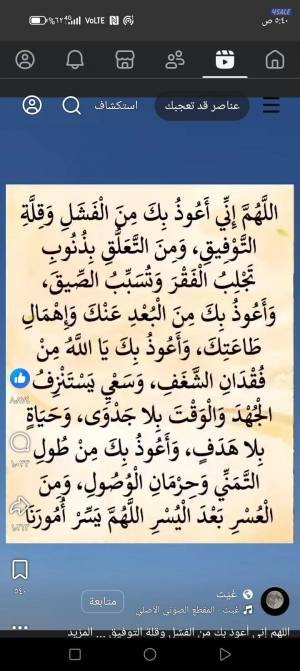 4SALE
٥:٤٠ ص
VoLTE
عناصر قد تعجبك
استكشاف
اللَّهُمَّ إِنِّي أَعُوذُ بِكَ مِنَ الْفَشَلِ وَقِلَّةِ
التَّوْفِيقِ، وَمِنَ التَّعَلُّقِ بِذُنُوبٍ
تَجْلِبُ الْفَقْرَ وَتُسَبِّبُ الضِّيقَ،
وَأَعُوذُ بِكَ مِنَ الْبُعْدِ عَنْكَ وَإِهْمَالِ
طَاعَتِكَ، وَأَعُوذُ بِكَ يَا اللَّهُ مِنْ
فُقْدَانِ الشَّغَفِ، وَسَعْيٍ يَسْتَنْزِفُ
الْجُهْدَ وَالْوَقْتَ بِلَا جَدْوَى، وَحَيَاةٍ
بِلَا هَدَفٍ، وَأَعُوذُ بِكَ مِنْ طُولِ
التَّمَنِّي وَحِرْمَانِ الْوُصُولِ، وَمِنَ
الْعُسْرِ بَعْدَ الْيُسْرِ اللَّهُمَّ يَسِّرْ أُمُورَنَا
٥٤٠
غيث
متابعة
غيث - المقطع الصوتي الأصلي
اللهم إني أعوذ بك من الفشل وقلة التوفيق ... المزيد